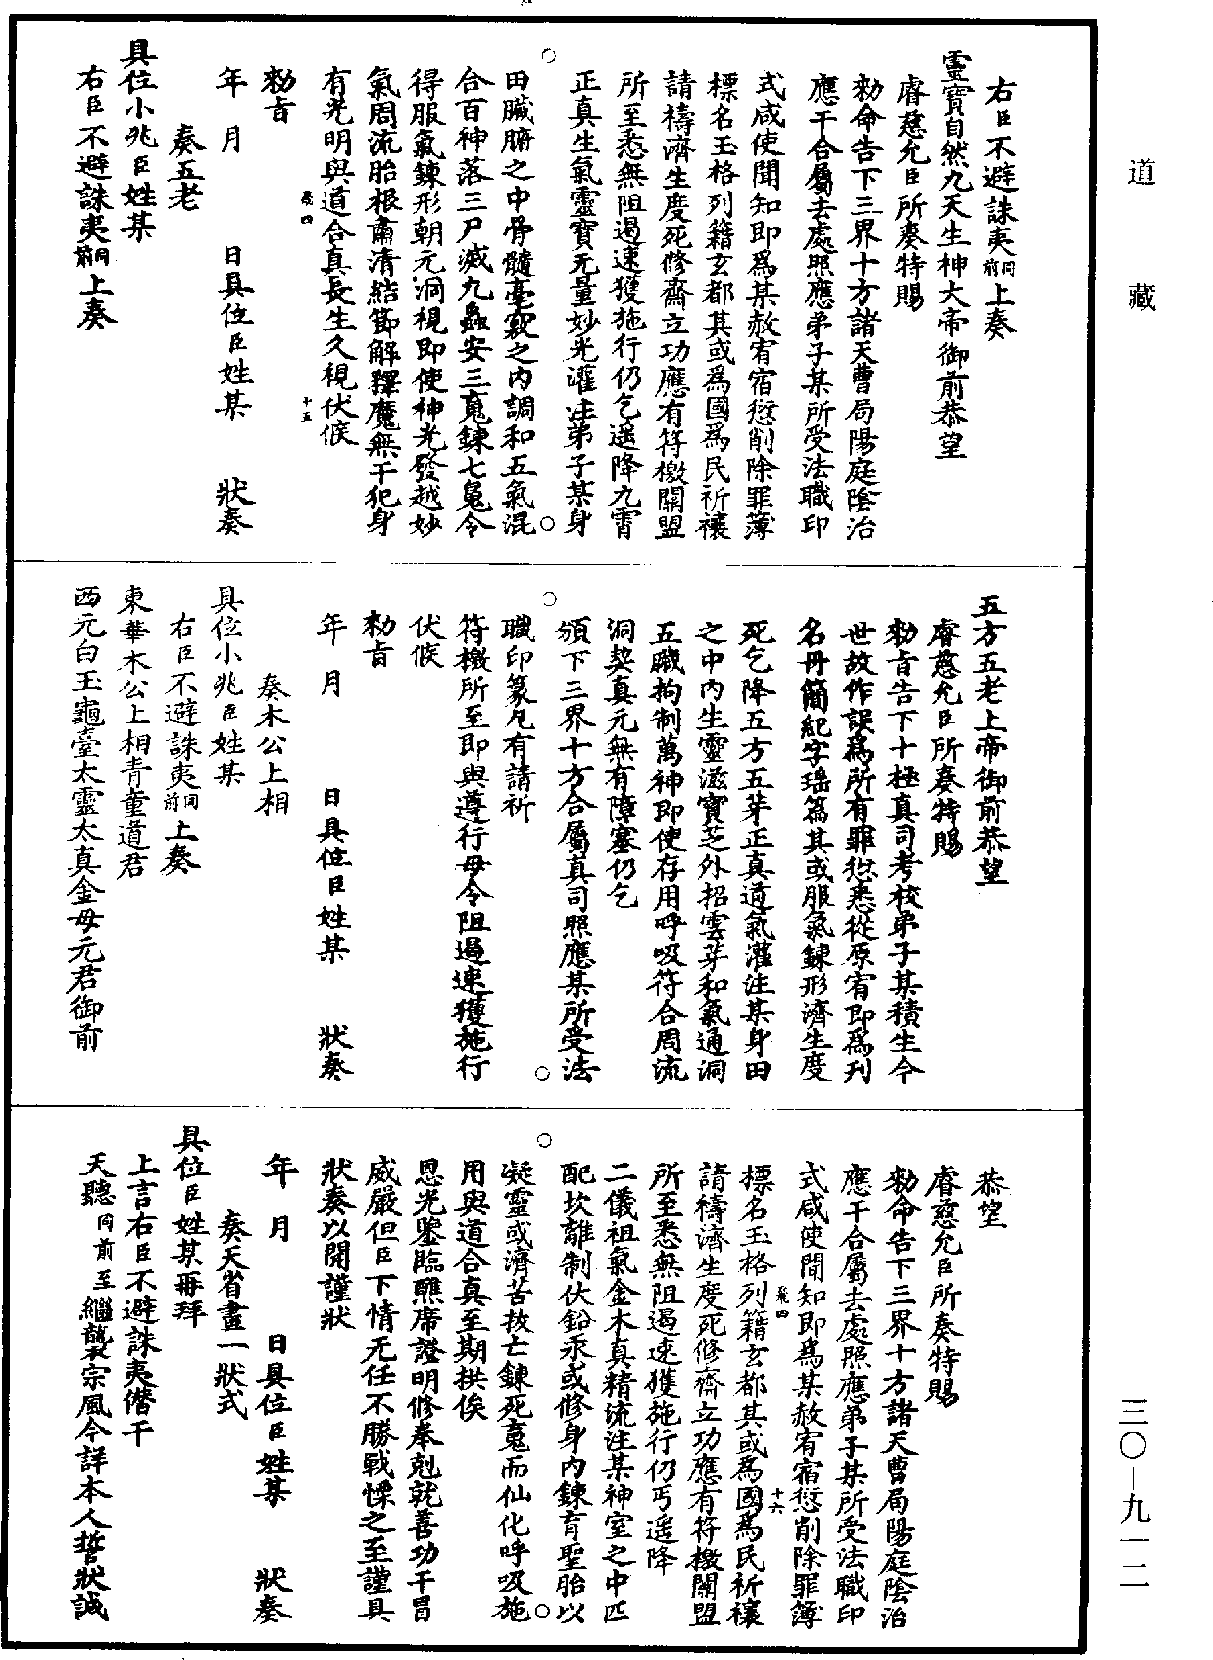 道藏
右臣不避誅夷同前上奏
靈寶自然九天生神大帝御前恭望
睿慈允臣所奏特賜
勑命告下三界十方諸天曹局陽庭陰治
應干合屬去處照應弟子某所受法職印
式咸使聞知即爲某赦宥宿愆削除罪簿
標名玉格列籍玄都其或爲國爲民祈禳
請禱濟生度死修齋立功應有符檄關盟
所至悉無阻遏速獲施行仍乞遥降九霄
正真生氣靈寶无量妙光灌注弟子某身
田臟腑之中骨髓毫竅之内調和五氣混
合百神落三尸滅九蟲安三䰟鍊七魄令
得服氣鍊形朝元洞視即使神光發越妙
氣周流胎根肅清結節解釋魔無干犯身
有光明與道合真長生久視伏候
勑旨
年　月　　日具位臣姓某　　狀奏
奏五老
具位小兆臣姓某
右臣不避誅夷同前上奏
五方五老上帝御前恭望
睿慈允臣所奏特賜
勑旨告下十極真司考校弟子某積生今
世故作誤爲所有罪愆悉從原宥即爲刋
名丹簡紀字瑶篇其或服氣鍊形濟生度
死乞降五方五芽正真道氣灌注某身田
之中内生靈滋寶芝外招雲芽和氣通洞
五職拘制萬神即使存用呼吸符合周流
洞契真元無有障塞仍乞
頒下三界十方合屬真司照應某所受法
職印篆凢有請祈
符檄所至即與遵行毋令阻遏速獲施行
伏候
勑旨
年　月　　日具位臣姓某　　狀奏
奏木公上相
具位小兆臣姓某
右臣不避誅夷同前上奏
東華木公上相青童道君
西元白玉龜臺太靈太真金母元君御前
恭望
睿慈允臣所奏特賜
勑命告下三界十方諸天曹局陽庭陰治
應干合屬去處照應弟子某所受法職印
式咸使聞知即爲某赦宥宿愆削除罪簿
標名玉格列籍玄都其或爲國爲民祈禳
請禱濟生度死修齋立功應有符檄關盟
所至悉無阻遏速獲施行仍丐遥降
二儀祖氣金木真精流注某神室之中匹
配坎離制伏鉛汞或修身内鍊育聖胎以
凝靈或濟苦拔亡鍊死䰟而仙化呼吸施
用與道合真至期拱俟
恩光鑒臨醮席證明修奉剋就善功干冒
威嚴但臣下情无任不勝戰慄之至謹具
狀奏以聞謹狀
年　月　　日具位臣姓某　　狀奏
奏天省畫一狀式
具位臣姓某再拜
上言右臣不避誅夷僭干
天聽同前至繼襲宗風今詳本人誓狀誠
三〇—九一二